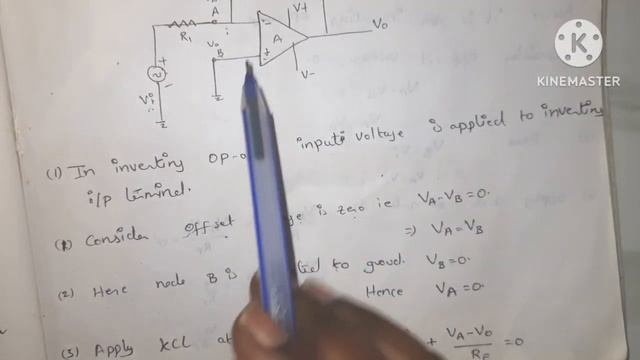 A
V+
R1
i
Vo
Vo
B
A
+
V-
Vi
KINEMASTER
(1) In inverting OP- input voltage is applied to inverting
i/p terminal.
(1) Consider offset is zero ie VA-VB=0.
=> VA=VB
(2) Here node B is to ground. VB=0.
Hence VA=0.
(3) Apply KCL at + VA-Vo/RF =0